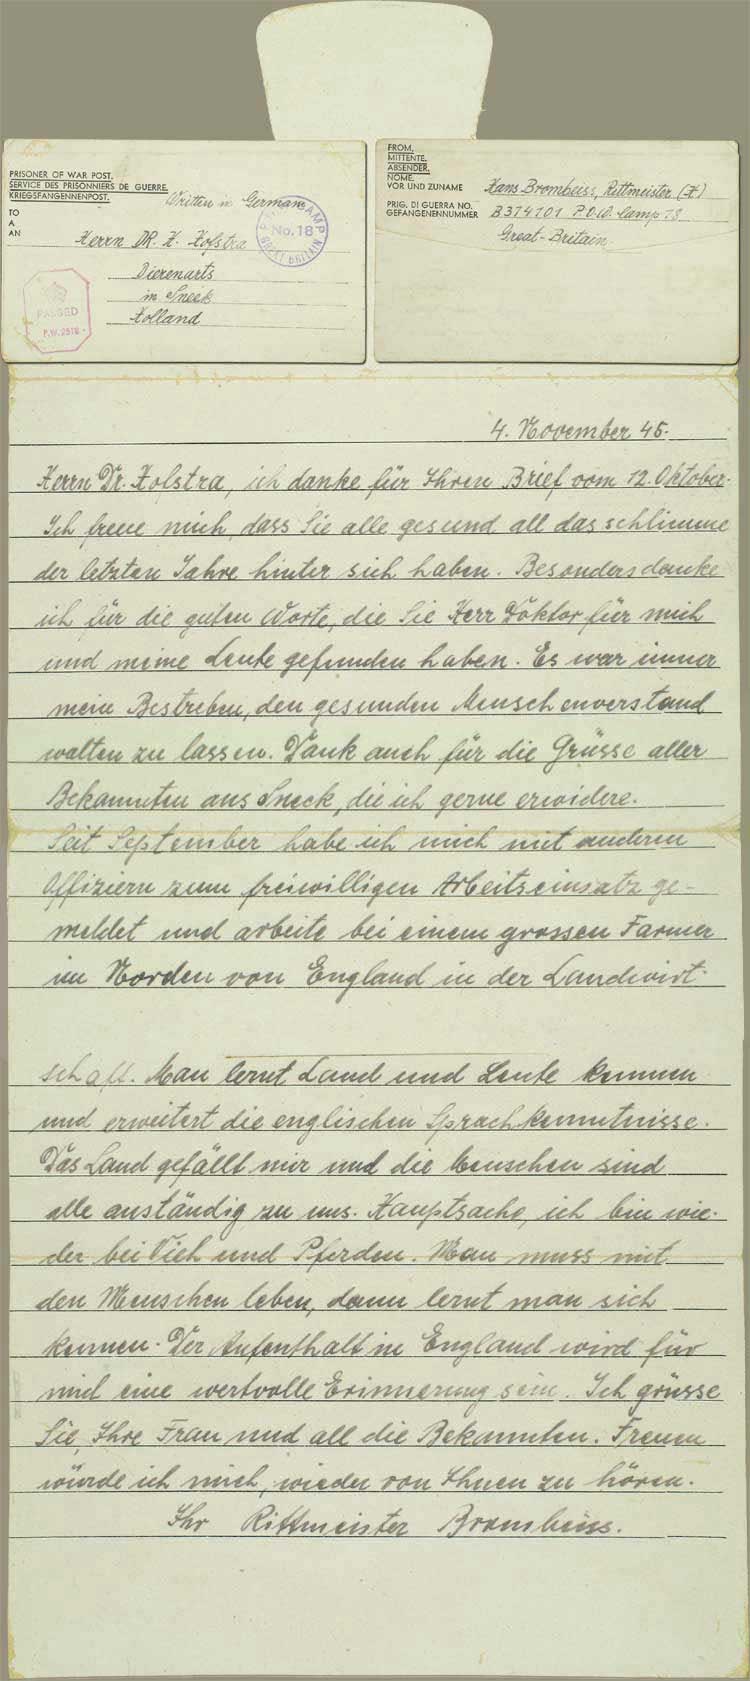 PRISONER OF WAR POST.
SERVICE DES PRISONNIERS DE GUERRE.
KRIEGSFANGENNENPOST.
Written in German
TO
A
AN
Herrn DR. H. Hofstra
Dierenarts
in Sneek
Holland
CAMP
No. 18
GREAT BRITAIN
PASSED
P.W. 2518
FROM,
MITTENTE.
ABSENDER.
NOME.
VOR UND ZUNAME
Hans Brombeiss, Rittmeister (H)
PRIG. DI GUERRA NO.
GEFANGENENNUMMER
B374101 P.O.W. Camp 18
Great-Britain
4. November 45.
Herrn Dr. Hofstra, ich danke für Ihren Brief vom 12. Oktober.
Ich freue mich, dass Sie alle gesund all das schlimme
der letzten Jahre hinter sich haben. Besonders danke
ich für die guten Worte, die Sie Herr Doktor für mich
und meine Leute gefunden haben. Es war immer
mein Bestreben, den gesunden Menschenverstand
walten zu lassen. Dank auch für die Grüsse aller
Bekannten aus Sneek, die ich gerne erwidere.
Seit September habe ich mich mit anderen
Offizieren zum freiwilligen Arbeitseinsatz ge-
meldet und arbeite bei einem grossen Farmer
im Norden von England in der Landwirt-
schaft. Man lernt Land und Leute kennen
und erweitert die englischen Sprachkenntnisse.
Das Land gefällt mir und die Menschen sind
alle anständig zu uns. Hauptsache, ich bin wie-
der bei Vieh und Pferden. Man muss mit
den Menschen leben, dann lernt man sich
kennen. Der Aufenthalt in England wird für
mich eine wertvolle Erinnerung sein. Ich grüsse
Sie, Ihre Frau und all die Bekannten. Freuen
würde ich mich, wieder von Ihnen zu hören.
Ihr Rittmeister Brombeiss.